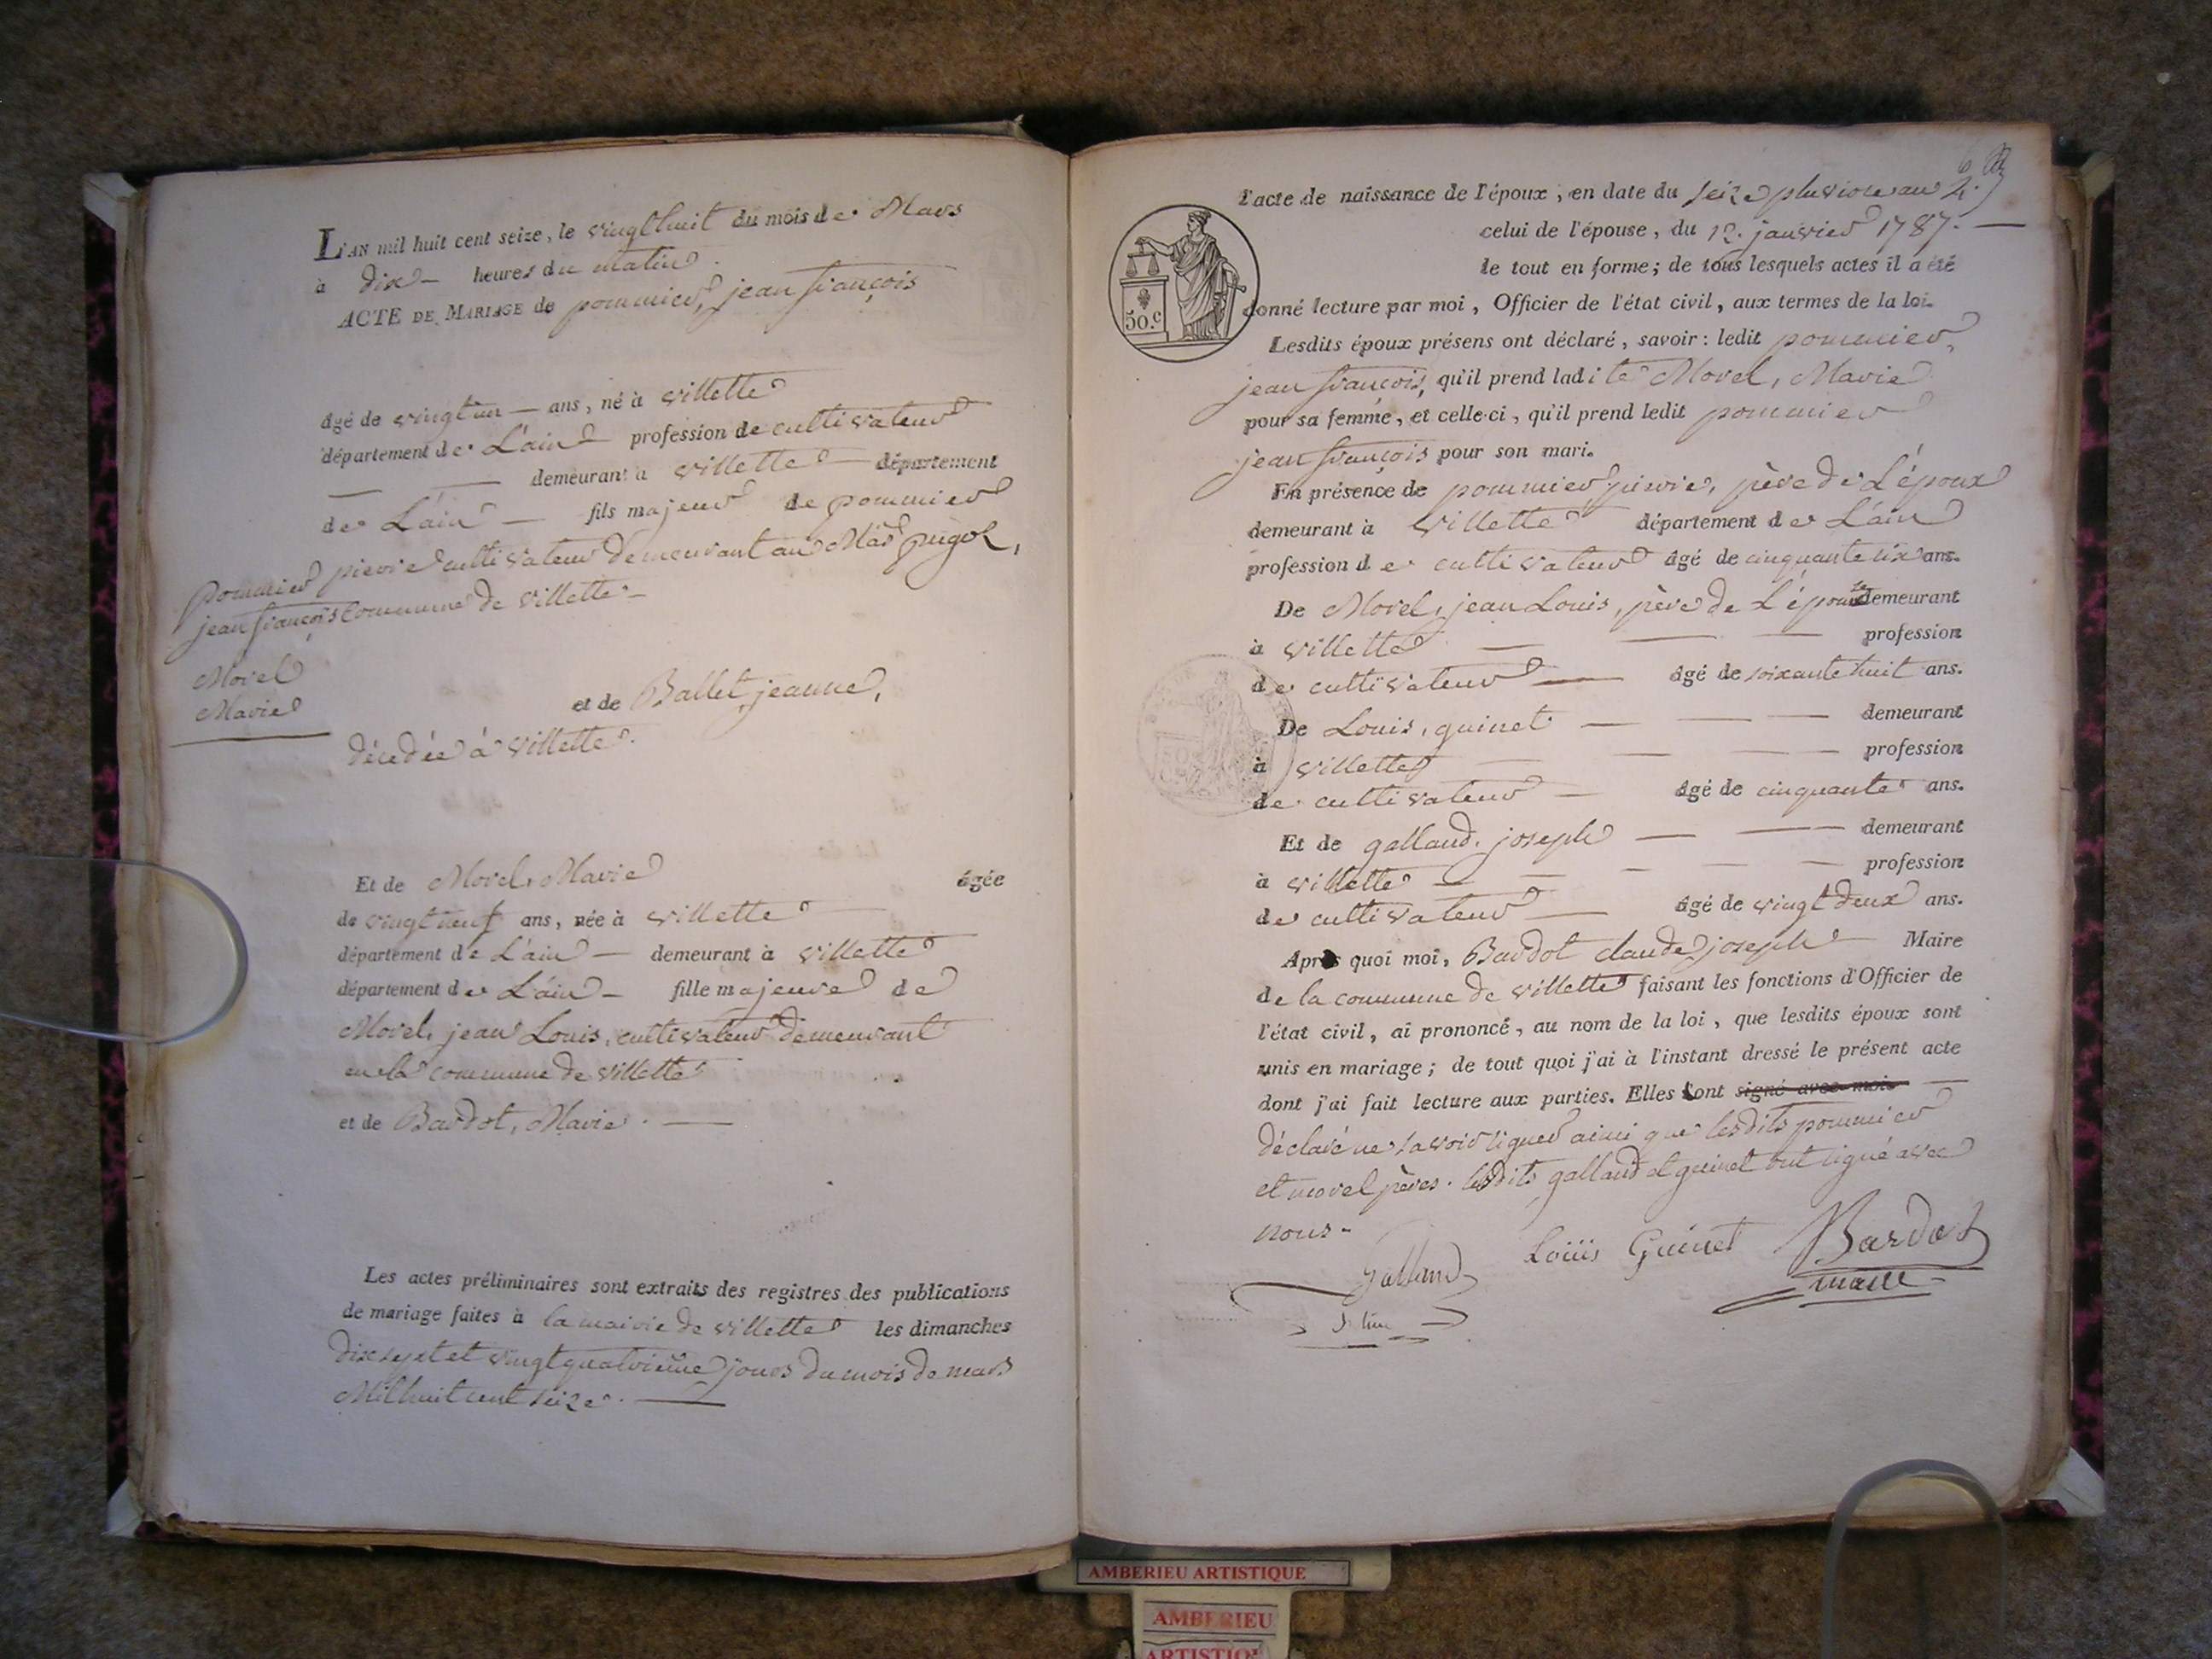 L'AN mil huit cent seize, le vingt huit du mois de Mars
à dix heures du matin.
ACTE DE MARIAGE de pommier, jean françois
âgé de vingt un ans, né à villette
département de L'ain profession de cultivateur
demeurant à villette département
de L'ain fils majeur de pommier
pierre cultivateur demeurant au Mas pugol,
commune de villette
Pommier
jean françois
Morel
Marie
et de Ballet, jeanne,
décédée à villette.
Et de Morel, Marie âgée
de vingt neuf ans, née à villette
département de L'ain demeurant à villette
département de L'ain fille majeure de
Morel, jean Louis, cultivateur demeurant
en la commune de villette
et de Bardot, Marie.
Les actes préliminaires sont extraits des registres des publications
de mariage faites à la mairie de villette les dimanches
dix sept et vingt quatrième jours du mois de mars
Mil huit cent seize.
6
l'acte de naissance de l'époux, en date du seize pluviose an 2.
celui de l'épouse, du 12. janvier 1787.
le tout en forme; de tous lesquels actes il a été
donné lecture par moi, Officier de l'état civil, aux termes de la loi.
50.c
Lesdits époux présens ont déclaré, savoir: ledit pommier,
jean françois, qu'il prend ladite Morel, Marie
pour sa femme, et celle-ci, qu'il prend ledit pommier
jean françois pour son mari.
En présence de pommier pierre, père de L'époux
demeurant à villette département de L'ain
profession de cultivateur âgé de cinquante six ans.
De Morel, jean Louis, père de L'épouse demeurant
à villette profession
de cultivateur âgé de soixante huit ans.
De Louis, guinet demeurant
à villette profession
de cultivateur âgé de cinquante ans.
Et de galland, joseph demeurant
à villette profession
de cultivateur âgé de vingt deux ans.
Après quoi moi, Bardot claude joseph Maire
de la commune de villette faisant les fonctions d'Officier de
l'état civil, ai prononcé, au nom de la loi, que lesdits époux sont
unis en mariage; de tout quoi j'ai à l'instant dressé le présent acte
dont j'ai fait lecture aux parties. Elles ont signé avec moi
déclaré ne savoir signer ainsi que lesdits pommier
et morel pères. lesdits galland et guinet ont signé avec
nous.
galland Loüis Guinet Bardot
maire
AMBERIEU ARTISTIQUE
AMBERIEU
ARTISTIQUE